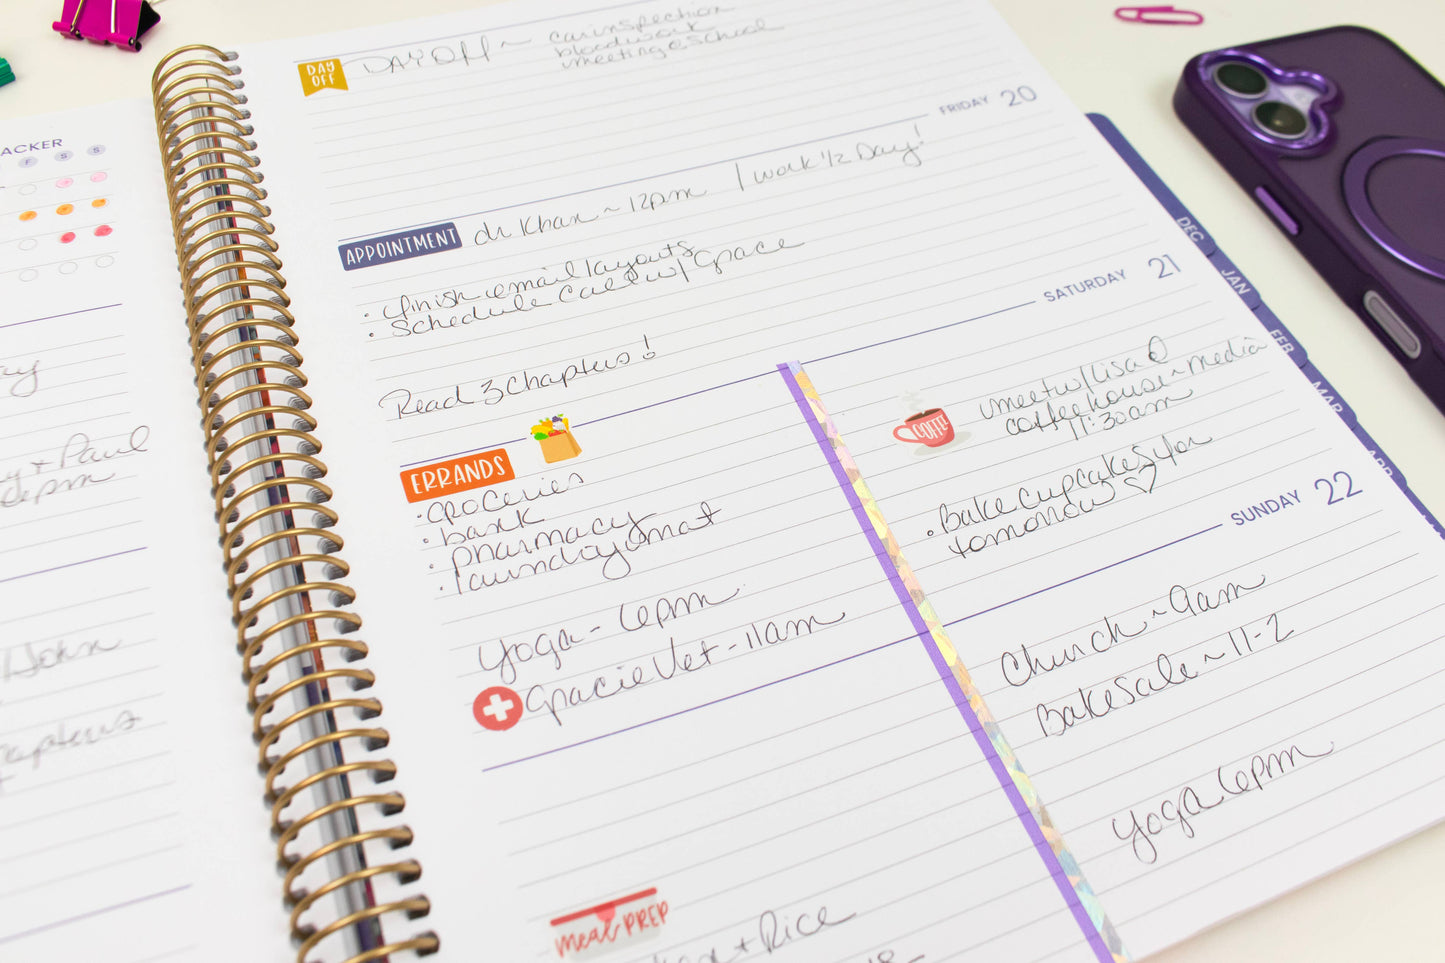 ACKER
F S S
ay
y + Paul
6pm
John
hapters
DAY
OFF
DAY OFF ~ car inspection
bloodwork
meeting @ school
FRIDAY 20
APPOINTMENT dr Khan ~ 12pm / work 1/2 Day!
• finish email layouts
• Schedule Call w/ Grace
Read 3 Chapters!
SATURDAY 21
ERRANDS
• groceries
• bank
• pharmacy
• laundry mat
Yoga - 6pm
Gracie Vet - 11am
COFFEE
meet w/ Lisa @
coffee house ~ media
11:30am
• Bake cupcakes for
tomorrow ♡
SUNDAY 22
Church ~ 9am
Bake Sale ~ 11-2
Yoga 6pm
meal PREP
+ Rice
DEC
JAN
FEB
MAR
APR